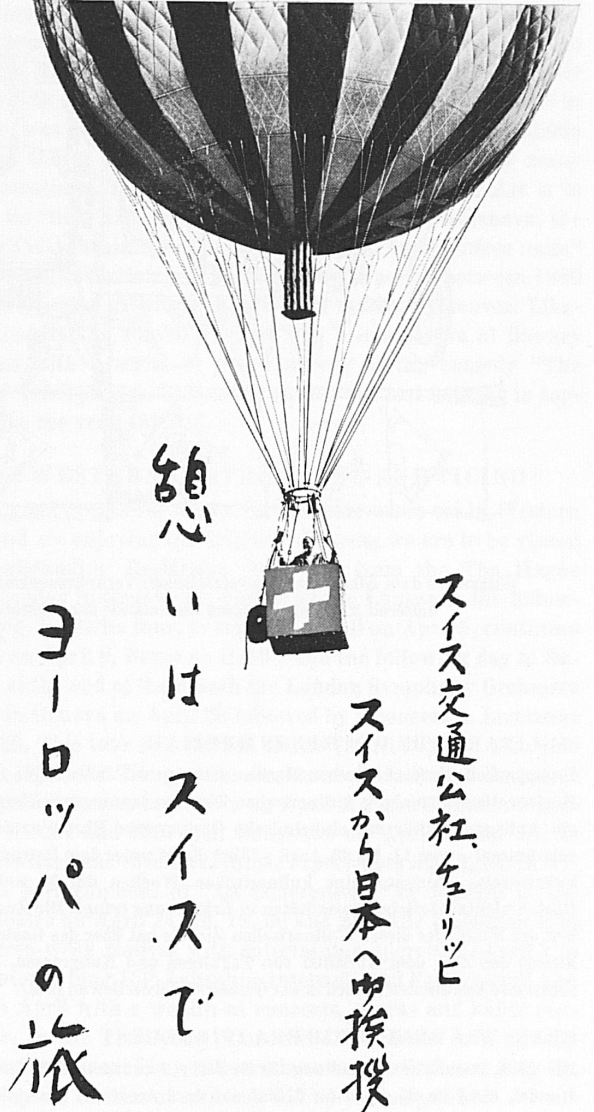 スイス交通公社、チューリッヒ
スイスから日本へ御挨拶
憩いはスイスで
ヨーロッパの旅